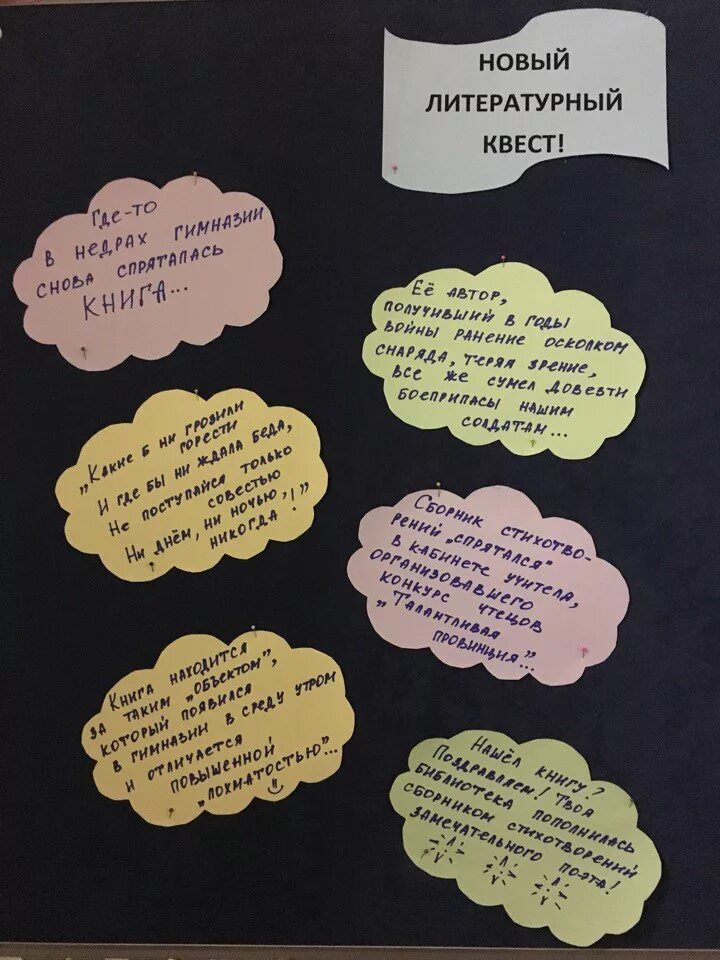 НОВЫЙ
ЛИТЕРАТУРНЫЙ
КВЕСТ!
Где-то
в недрах гимназии
снова спряталась
КНИГА...
Её автор,
получивший в годы
войны ранение осколком
снаряда, теряя зрение,
все же сумел довезти
боеприпасы нашим
солдатам...
„Какие б ни грозили
горести
И где бы ни ждала беда,
Не поступайся только
совестью
Ни днём, ни ночью,
никогда!"
Сборник стихотво-
рений „спрятался"
в кабинете учителя,
организовавшего
конкурс чтецов
„Талантливая
провинция"...
Книга находится
за таким „объектом",
который появился
в гимназии в среду утром
и отличается
повышенной
„лохматостью"...
Нашёл книгу?
Поздравляем! Твоя
библиотека пополнилась
сборником стихотворений
замечательного поэта!